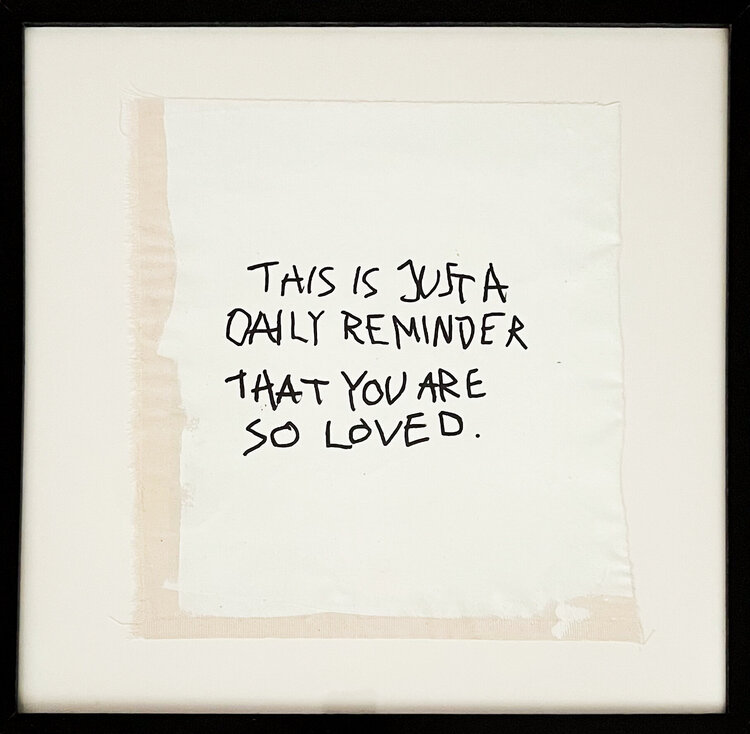 THIS IS JUST A
DAILY REMINDER
THAT YOU ARE
SO LOVED.